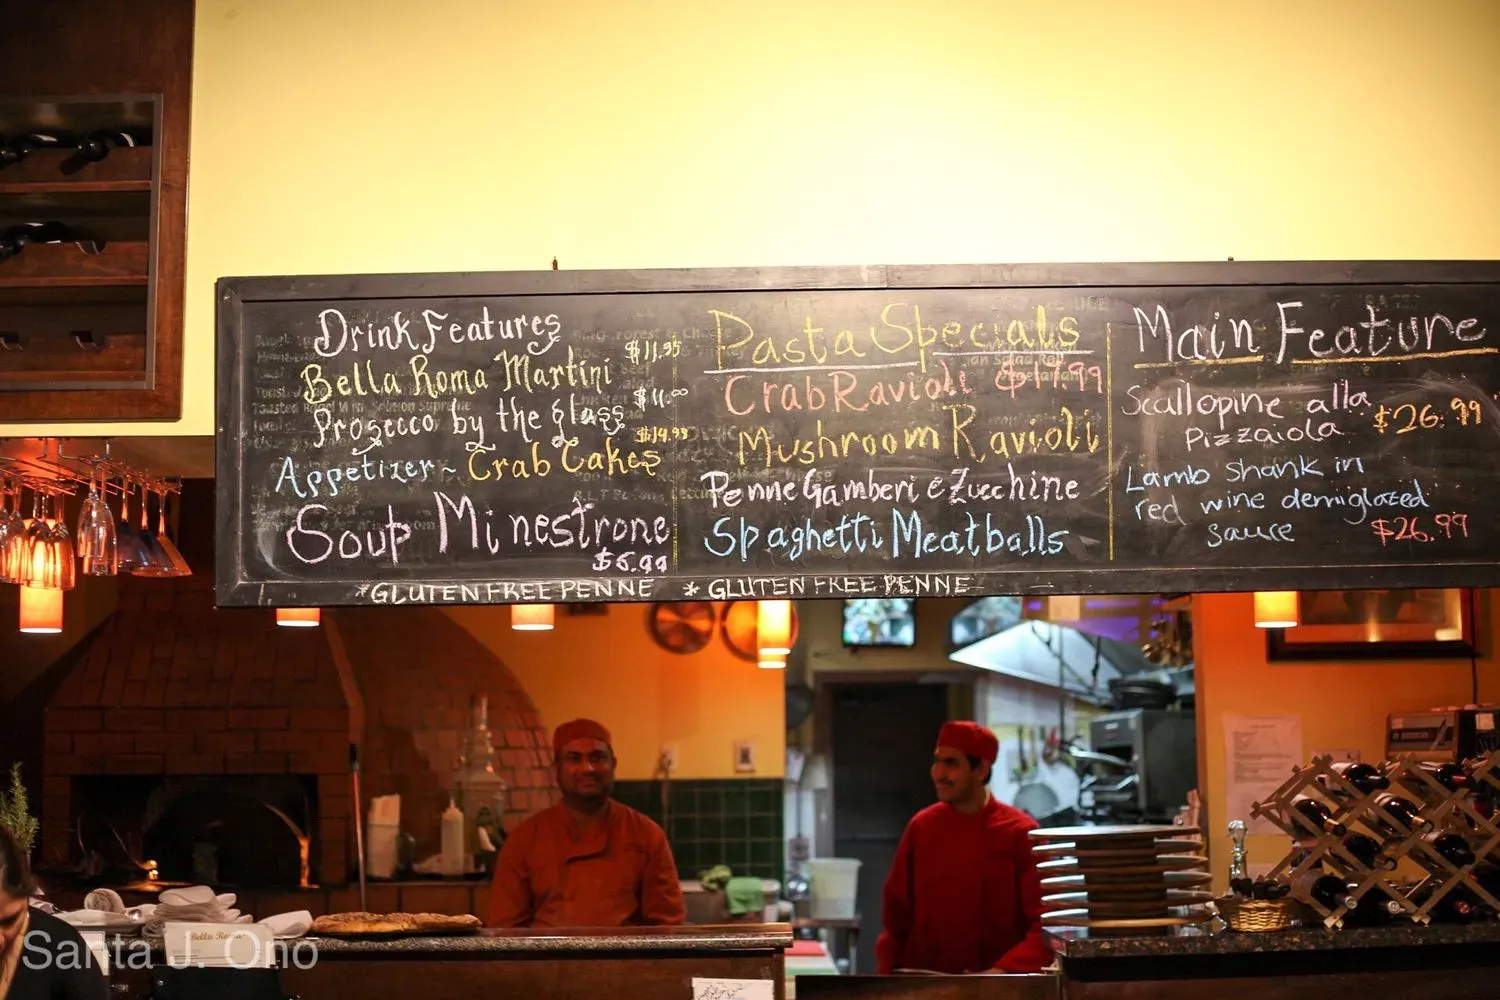 Drink Features
Bella Roma Martini $11.95
Prosecco by the glass $11.00
Appetizer ~ Crab Cakes $14.99
Soup Minestrone
$6.99
Pasta Specials
Crab Ravioli $17.99
Mushroom Ravioli
Penne Gamberi e Zucchine
Spaghetti Meatballs
Main Feature
Scallopine alla
Pizzaiola $26.99
Lamb Shank in
red wine demiglazed
sauce $26.99
*GLUTEN FREE PENNE * GLUTEN FREE PENNE
Bella Roma
Santa J. Ono